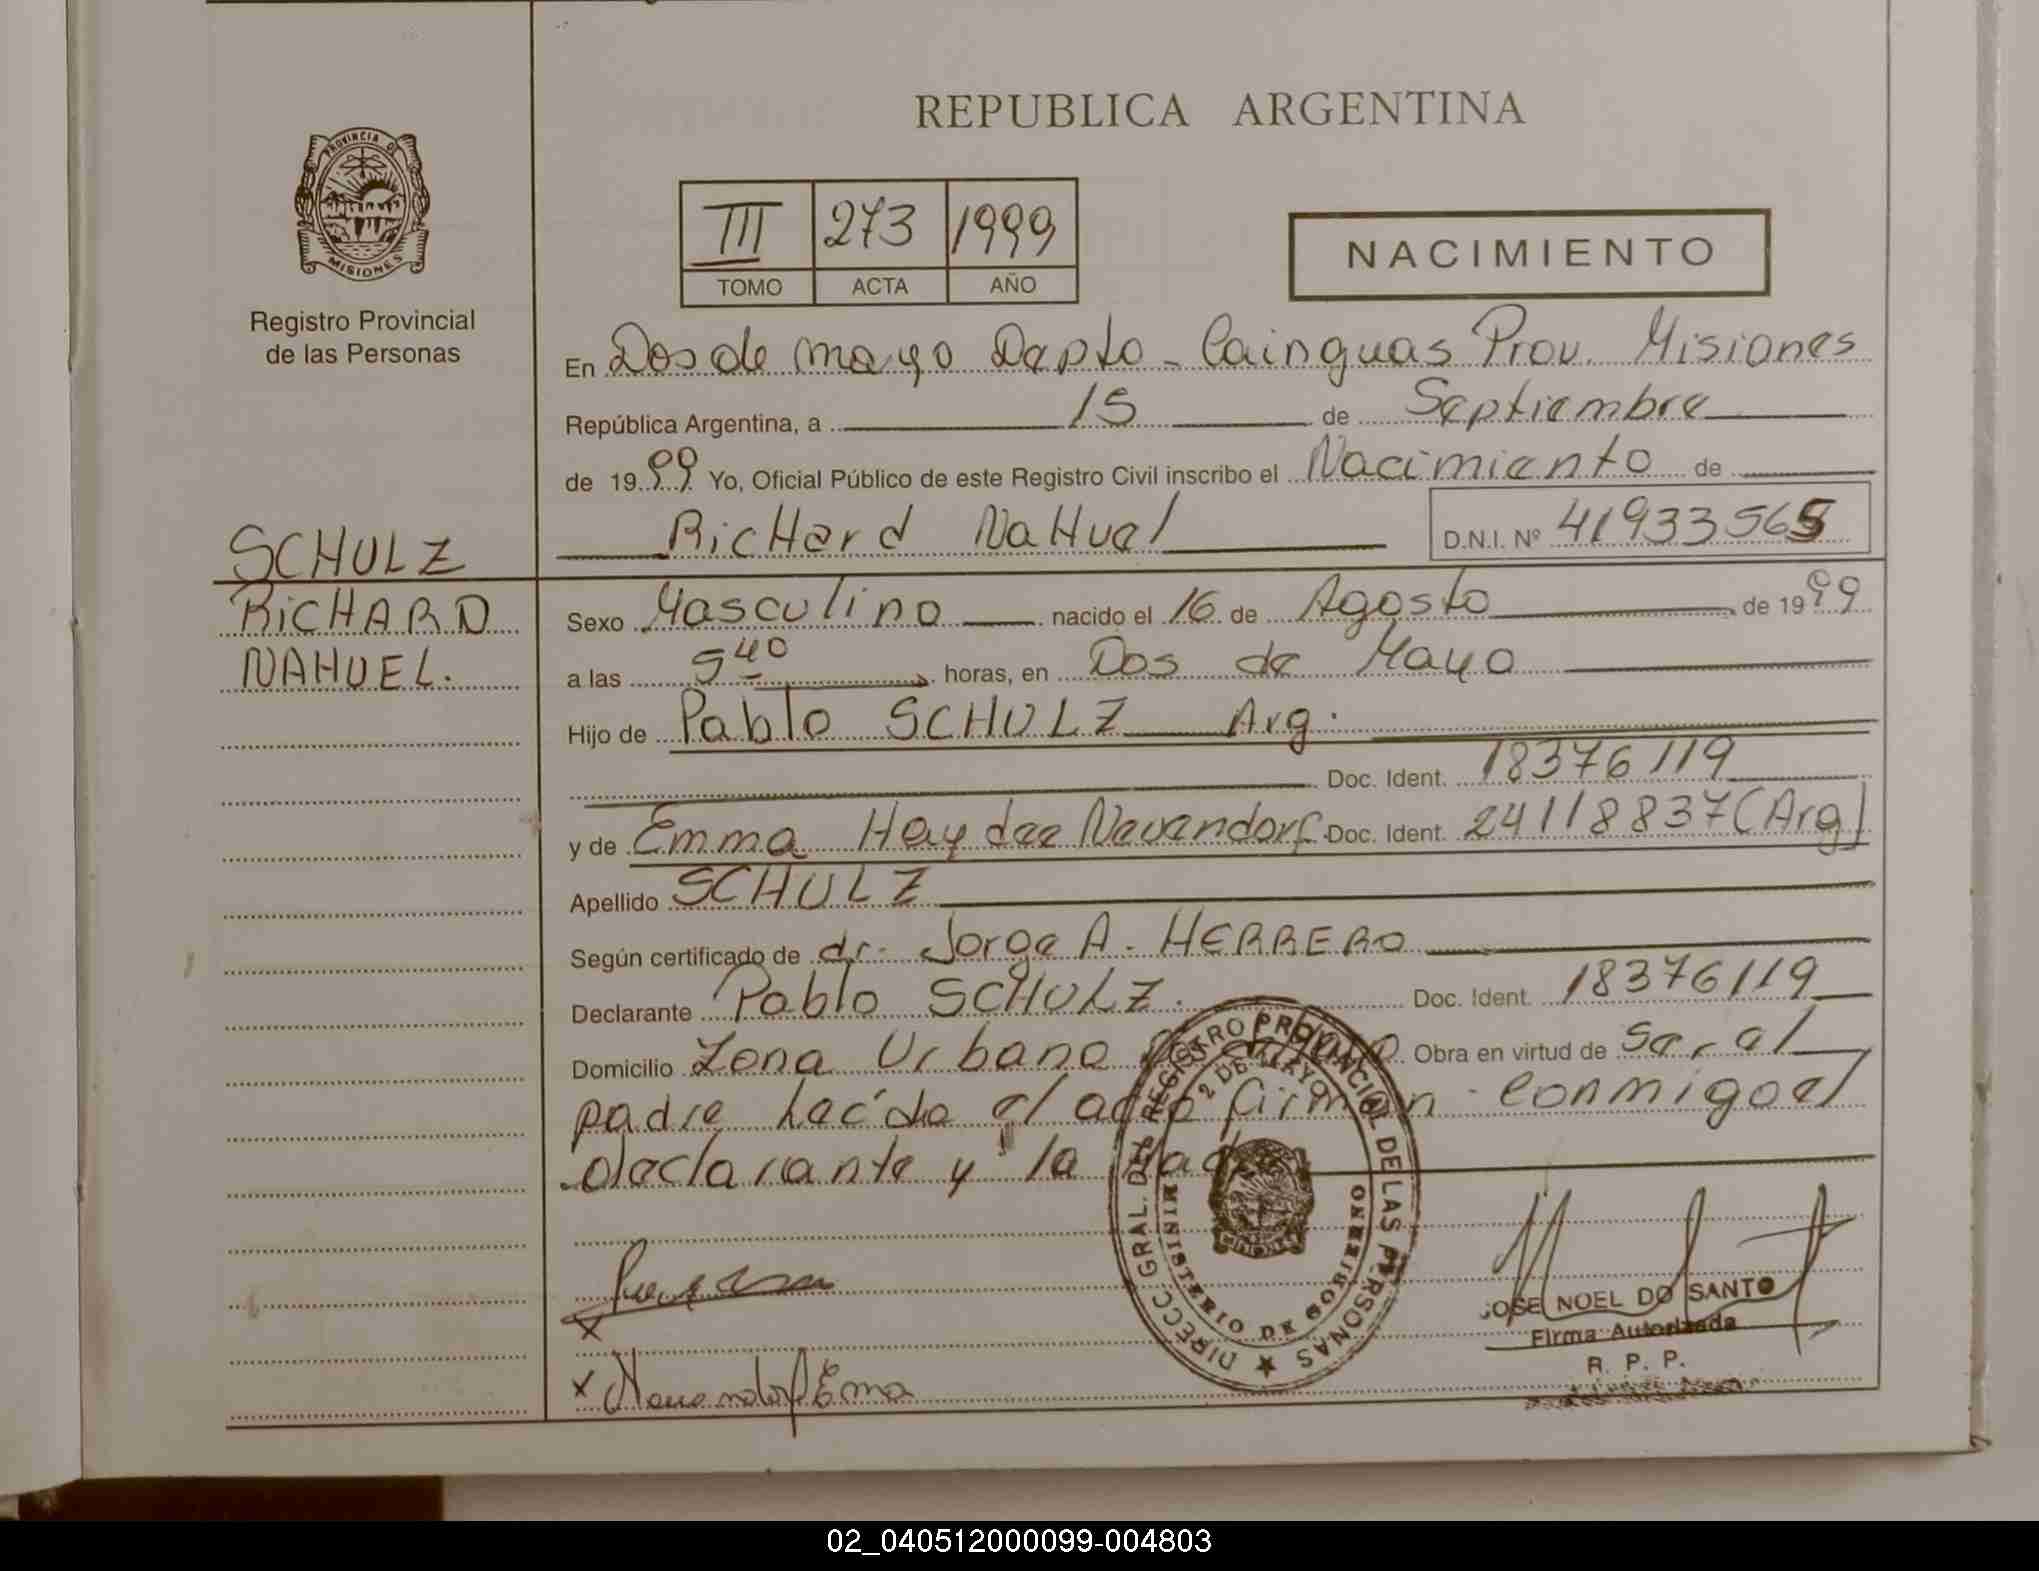 REPUBLICA ARGENTINA
PROVINCIA DE
MISIONES
Registro Provincial
de las Personas
III 273 1999
TOMO ACTA AÑO
NACIMIENTO
En Dos de mayo Depto - Cainguas Prov. Misiones
República Argentina, a 15 de Septiembre
de 1999 Yo, Oficial Público de este Registro Civil inscribo el Nacimiento de
RicHard NaHuel D.N.I. Nº 41933565
SCHULZ
RiCHARD
NAHUEL.
Sexo Masculino nacido el 16 de Agosto de 1999
a las 5 40 horas, en Dos de Mayo
Hijo de Pablo SCHULZ Arg.
Doc. Ident. 18376119
y de Emma Haydee Neuendorf Doc. Ident. 24118837 (Arg)
Apellido SCHULZ
Según certificado de dr. Jorge A. HERRERO
Declarante Pablo SCHULZ. Doc. Ident. 18376119
Domicilio Zona Urbana Obra en virtud de Ser el
padre Leída el acta firman conmigo el
declarante y la Madre
DIRECC. GRAL. DEL REGISTRO PROVINCIAL DE LAS PERSONAS
2 DE MAYO
MISIONES
MINISTERIO DE GOBIERNO
JOSE NOEL DO SANTO
Firma Autorizada
R. P. P.
x
x Neuendorf Ema
02_040512000099-004803